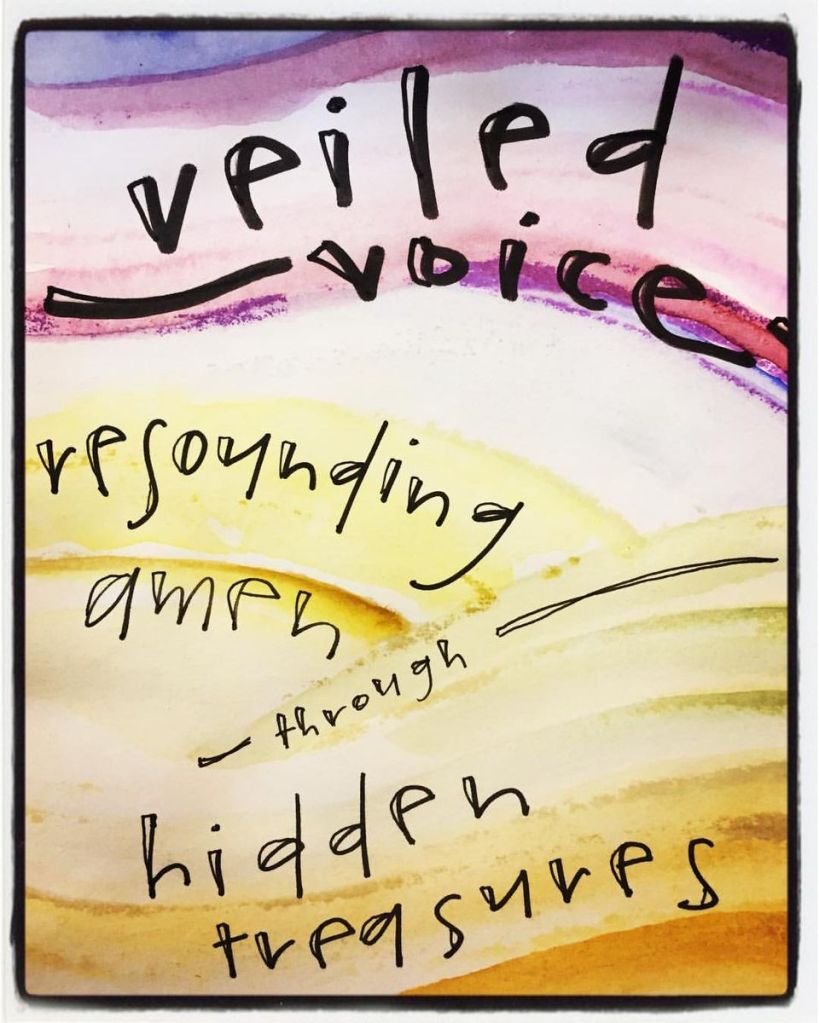 veiled
voice
resounding
amen
through
hidden
treasures